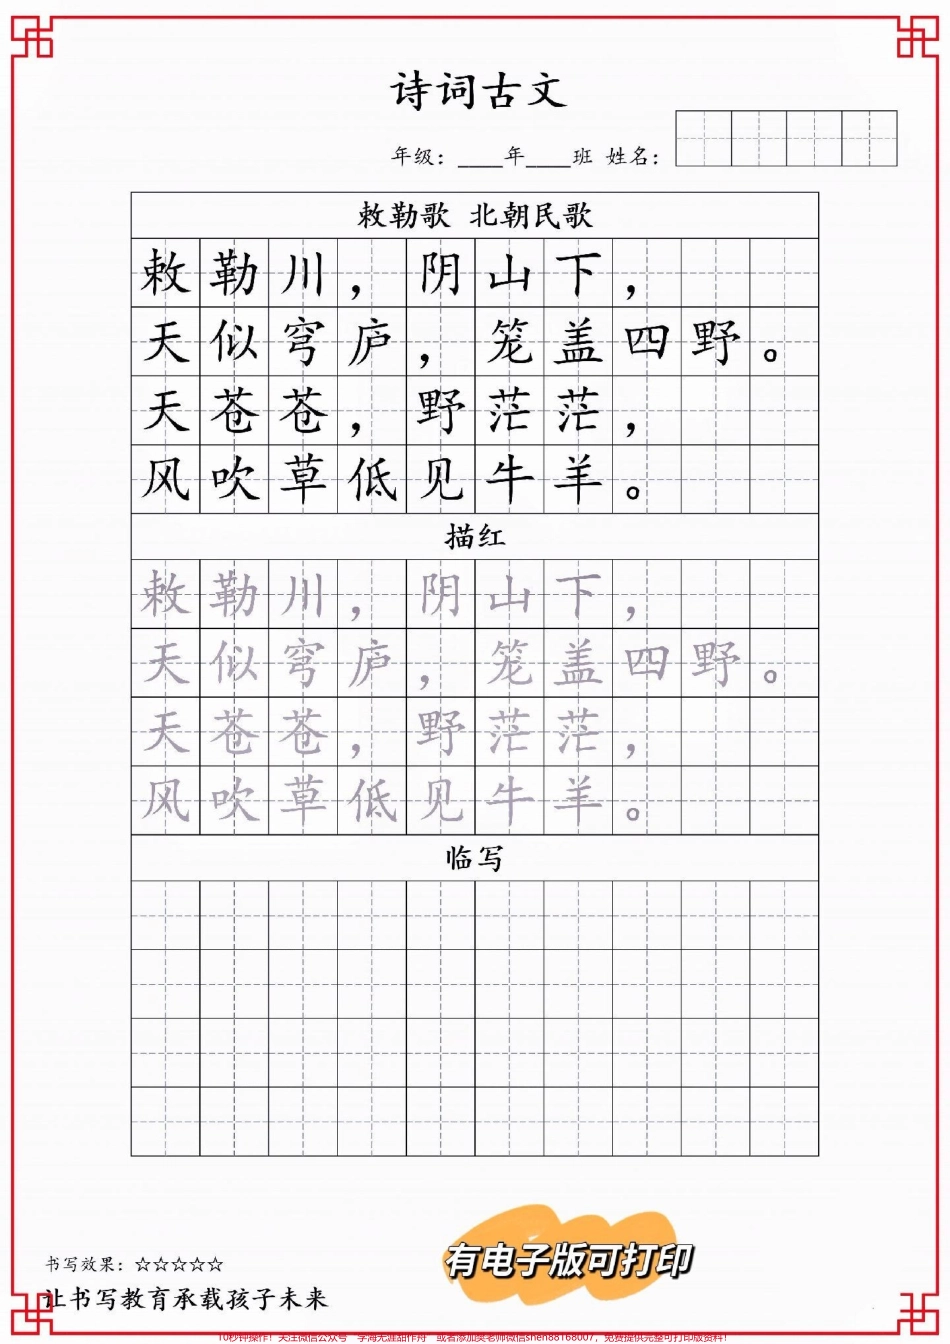 诗词古文
年级：____年____班 姓名：
敕勒歌 北朝民歌
敕勒川，阴山下，
天似穹庐，笼盖四野。
天苍苍，野茫茫，
风吹草低见牛羊。
描红
敕勒川，阴山下，
天似穹庐，笼盖四野。
天苍苍，野茫茫，
风吹草低见牛羊。
临写
有电子版可打印
书写效果：☆☆☆☆☆
让书写教育承载孩子未来
10秒钟操作！关注微信公众号“学海无涯甜作舟”或者添加奥老师微信shen88168007，免费提供完整可打印版资料！